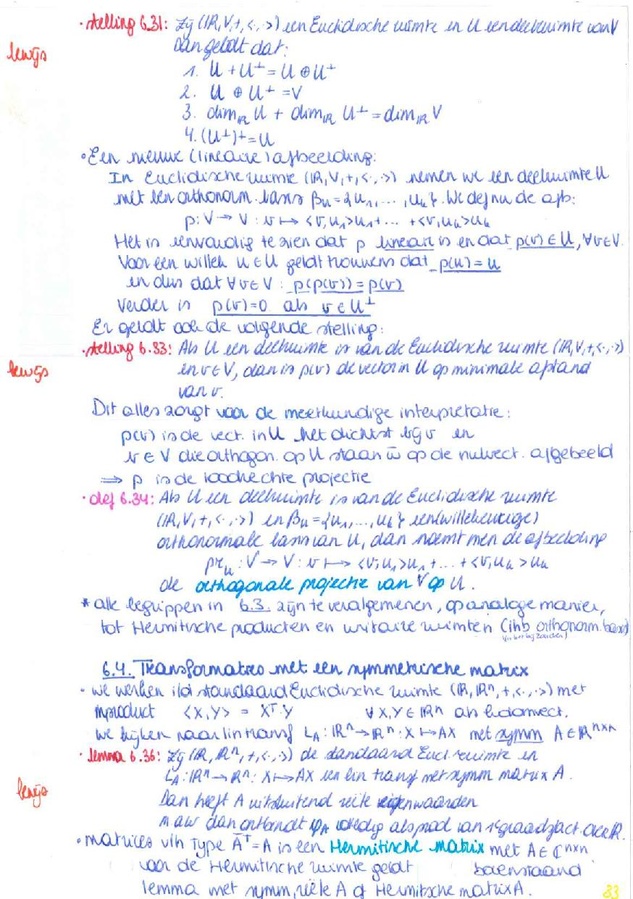 • stelling 6.31: Zij (ℝ,V,+,<·,·>) een Euclidische ruimte en U een deelruimte van V
bewijs
Dan geldt dat:
1. U + U^⊥ = U ⊕ U^⊥
2. U ⊕ U^⊥ = V
3. dim_ℝ U + dim_ℝ U^⊥ = dim_ℝ V
4. (U^⊥)^⊥ = U
• Een nieuwe (lineaire) afbeelding:
In Euclidische ruimte (ℝ,V,+,<·,·>) nemen we een deelruimte U
met een orthonorm. basis β_u = {u₁,...,u_k}. We def nu de afb:
p: V → V : v ↦ <v,u₁>u₁ + ... + <v,u_k>u_k
Het is eenvoudig te zien dat p lineair is en dat p(v) ∈ U, ∀v∈V.
Voor een willek u∈U geldt trouwens dat p(u) = u
en dus dat ∀v∈V : p(p(v)) = p(v)
Verder is p(v)=0 als v∈U^⊥
Er geldt ook de volgende stelling:
• stelling 6.33: Als U een deelruimte is van de Euclidische ruimte (ℝ,V,+,<·,·>)
bewijs
en v∈V, dan is p(v) de vector in U op minimale afstand
van v.
Dit alles zorgt voor de meetkundige interpretatie:
p(v) is de vect. in U het dichtst bij v en
v ∈ V die orthogon. op U staan w op de nulvect. afgebeeld
⟹ p is de loodrechte projectie
• def 6.34: Als U een deelruimte is van de Euclidische ruimte
(ℝ,V,+,<·,·>) en β_u = {u₁,...,u_k} een (willekeurige)
orthonormale basis van U, dan noemt men de afbeelding
pr_u : V → V : v ↦ <v,u₁>u₁ + ... + <v,u_k>u_k
de orthogonale projectie van V op U.
* alle begrippen in 6.3. zijn te veralgemenen, op analoge manier,
tot Hermitische producten en unitaire ruimten (ihb orthonorm. basis)
6.4. Transformaties met een symmetrische matrix
• we werken i/d standaard Euclidische ruimte (ℝ,ℝⁿ,+,<·,·>) met
inproduct <X,Y> = X^T·Y ∀X,Y∈ℝⁿ als kolomvect.
we kijken naar lin transf L_A : ℝⁿ → ℝⁿ : X ↦ AX met symm A∈ℝ^{n×n}
• lemma 6.36: Zij (ℝ,ℝⁿ,+,<·,·>) de standaard Eucl ruimte en
L_A : ℝⁿ → ℝⁿ : X ↦ AX een lin transf met symm matrix A.
bewijs
Dan heeft A uitsluitend reële eigenwaarden
m a w dan ontbindt φ_A volledig als prod van 1e graadsfact over ℝ.
• matrices v/h type Ā^T = A is een Hermitische matrix met A∈ℂ^{n×n}
voor de Hermitische ruimte geldt bovenstaand
lemma met symm, reële A of Hermitische matrix A.
83